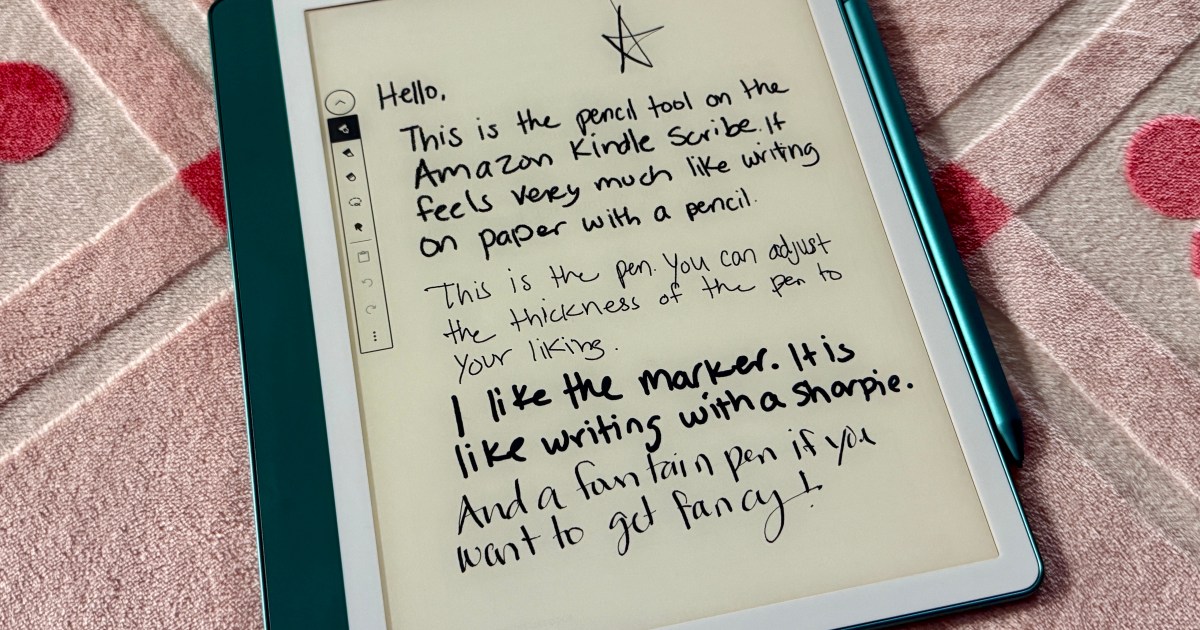 Hello,
This is the pencil tool on the
Amazon Kindle Scribe. It
feels very much like writing
on paper with a pencil.
This is the pen. You can adjust
the thickness of the pen to
your liking.
I like the marker. It is
like writing with a Sharpie.
And a fountain pen if you
want to get fancy!